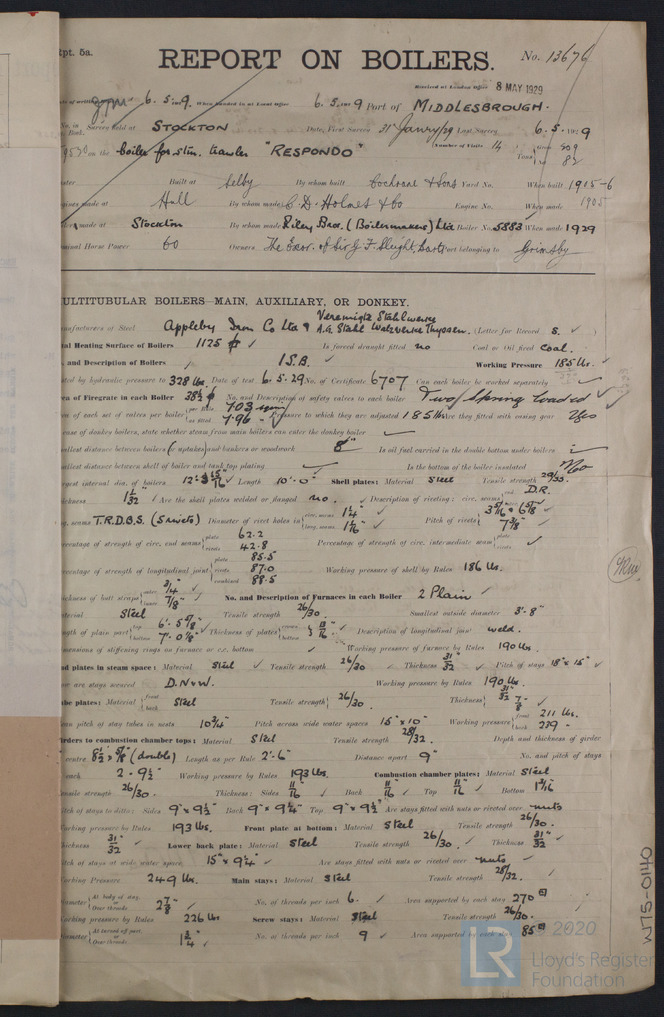 Rpt. 5a.
REPORT ON BOILERS.
No. 13676
Received at London Office 8 MAY 1929
6. 5. 1929. When handed in at Local Office 6. 5. 1929 Port of MIDDLESBROUGH.
No. in Survey held at STOCKTON Date, First Survey 31st Janry/29 Last Survey 6. 5. 1929
on the boiler for stm. trawler "RESPONDO" (Number of Visits 14 Tons Gross 209 Net 82
Built at Selby By whom built Cochrane & Sons Yard No. When built 1915-6
made at Hull By whom made C. D. Holmes & Co Engine No. When made 1905
made at Stockton By whom made Riley Bros. (Boilermakers) Ltd Boiler No. 5883 When made 1929
Nominal Horse Power 60 Owners The Exor. of Sir G. F. Sleight, Bart. Port belonging to Grimsby
MULTITUBULAR BOILERS—MAIN, AUXILIARY, OR DONKEY.
Manufacturers of Steel Appleby Iron Co Ltd & Vereinigte Stahlwerke A.G. Stahl Walzwerke Thyssen. (Letter for Record S. )
Total Heating Surface of Boilers 1125 Is forced draught fitted no Coal or Oil fired Coal.
No. and Description of Boilers 1 S.B. Working Pressure 185 lbs.
Tested by hydraulic pressure to 328 lbs. Date of test 6. 5. 29 No. of Certificate 6707 Can each boiler be worked separately
Area of Firegrate in each Boiler 38½ No. and Description of safety valves to each boiler Two Spring Loaded
Area of each set of valves per boiler per Rule 7.03 as fitted 7.96 Pressure to which they are adjusted 185 lbs Are they fitted with easing gear Yes
In case of donkey boilers, state whether steam from main boilers can enter the donkey boiler
Smallest distance between boilers or uptakes and bunkers or woodwork 8" Is oil fuel carried in the double bottom under boilers
Smallest distance between shell of boiler and tank top plating Is the bottom of the boiler insulated No
Largest internal dia. of boilers Length 10'-0" Shell plates: Material Steel Tensile strength 29/33.
Thickness 1 1/32" Are the shell plates welded or flanged no. Description of riveting: circ. seams end D.R.
long. seams T.R.D.B.S. (5 rivets) Diameter of rivet holes in circ. seams 1¼" long. seams 1 1/16" Pitch of rivets 7 3/8"
Percentage of strength of circ. end seams plate 62.2 rivets 42.8 Percentage of strength of circ. intermediate seam plate rivets
Percentage of strength of longitudinal joint plate 85.5 rivets 87.0 combined 88.5 Working pressure of shell by Rules 186 lbs.
Thickness of butt straps outer 3/4" inner 7/8" No. and Description of Furnaces in each Boiler 2 Plain
Material Steel Tensile strength 26/30 Smallest outside diameter 3'-8"
Length of plain part top 6'-5 5/8" bottom 7'-0 1/8" Thickness of plates crown bottom 13/16" Description of longitudinal joint weld.
Dimensions of stiffening rings on furnace or c.c. bottom Working pressure of furnace by Rules 190 lbs.
End plates in steam space: Material Steel Tensile strength 26/30 Thickness 31/32" Pitch of stays 18" x 15"
How are stays secured D.N+W. Working pressure by Rules 190 lbs.
Tube plates: Material front back Steel Tensile strength 26/30. Thickness 31/32" 7/8"
Mean pitch of stay tubes in nests 10¾" Pitch across wide water spaces 15" x 10" Working pressure front 211 lbs. back 239
Girders to combustion chamber tops: Material Steel Tensile strength 28/32 Depth and thickness of girder
at centre 8½" x 5/8" (double) Length as per Rule 2'-6" Distance apart 9" No. and pitch of stays
in each 2 - 9½" Working pressure by Rules 193 lbs. Combustion chamber plates: Material Steel
Tensile strength 26/30. Thickness: Sides 11/16" Back 11/16" Top 11/16" Bottom 1 3/16"
Pitch of stays to ditto: Sides 9" x 9½" Back 9" x 9¼" Top 9" x 9½" Are stays fitted with nuts or riveted over nuts
Working pressure by Rules 193 lbs. Front plate at bottom: Material Steel Tensile strength 26/30.
Thickness 31/32" Lower back plate: Material Steel Tensile strength 26/30. Thickness 31/32"
Pitch of stays at wide water space 15" x 9¼" Are stays fitted with nuts or riveted over nuts
Working Pressure 249 lbs. Main stays: Material Steel Tensile strength 28/32.
Diameter At body of stay, or Over threads 2 7/8" No. of threads per inch 6. Area supported by each stay 270
Working pressure by Rules 226 lbs Screw stays: Material Steel Tensile strength 26/30.
Diameter At turned off part, or Over threads 1¾" No. of threads per inch 9 Area supported by each stay 85
W175-0140
© 2020
LR
Lloyd's Register
Foundation